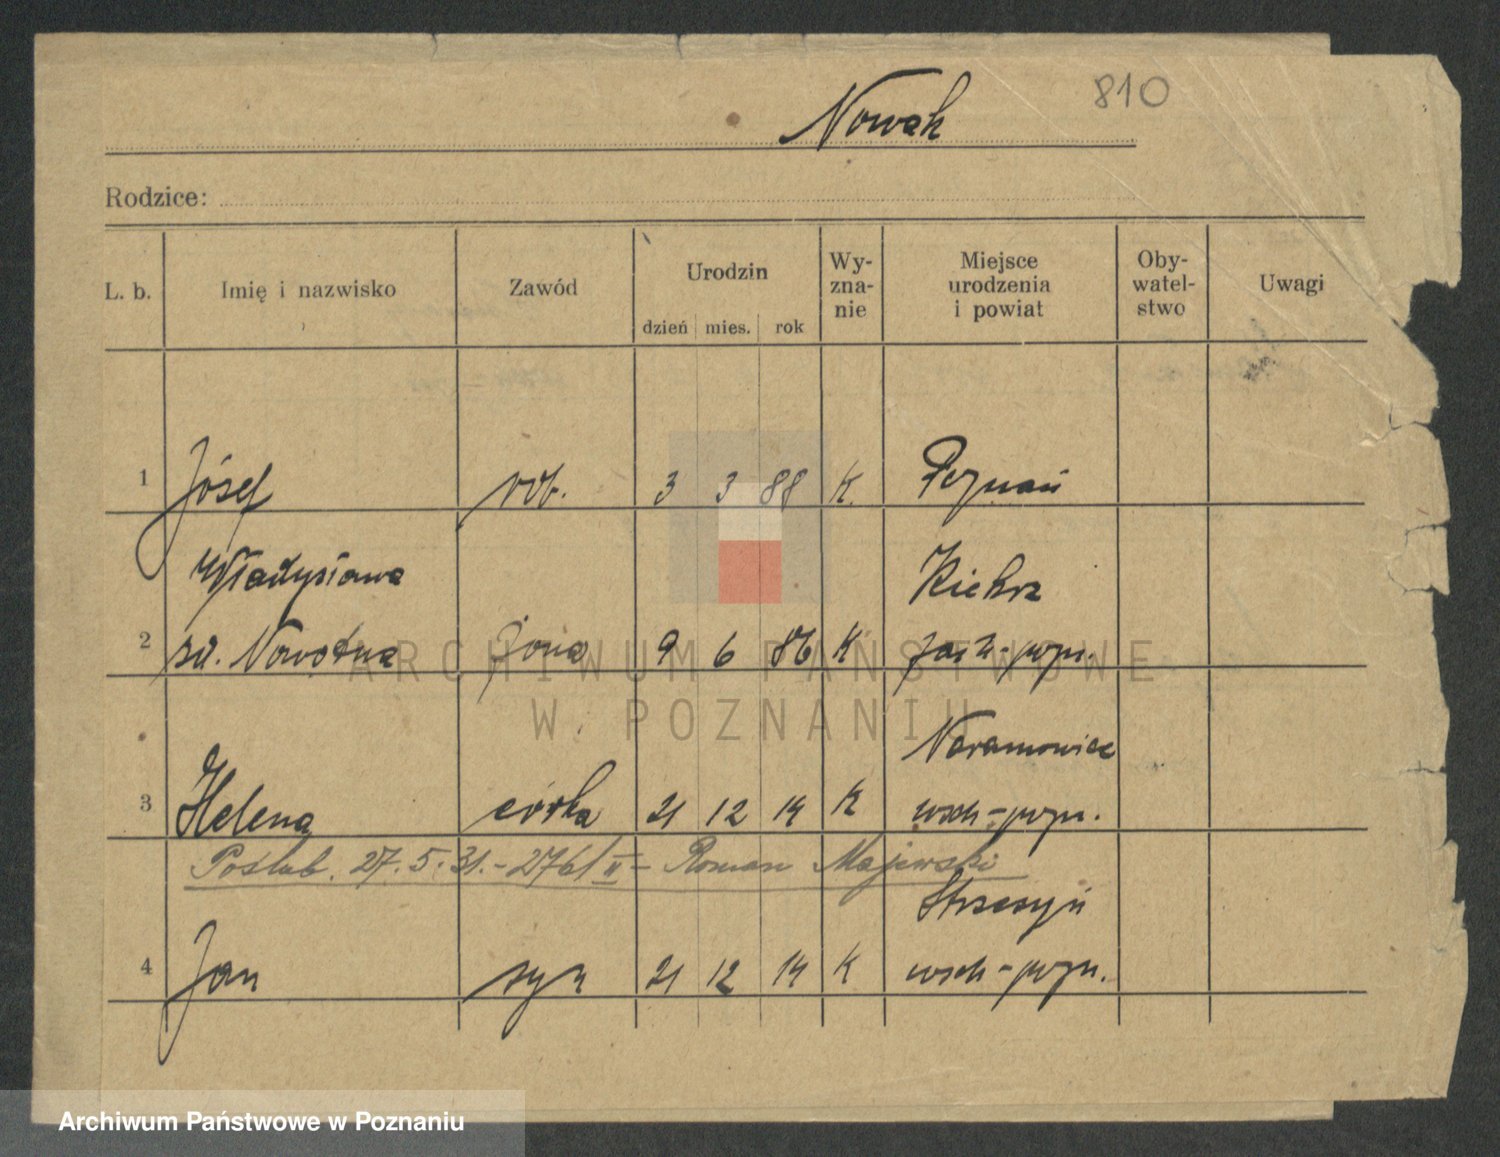 810
Nowak
Rodzice:
L. b. Imię i nazwisko Zawód Urodzin dzień mies. rok Wy-zna-nie Miejsce urodzenia i powiat Oby-watel-stwo Uwagi
1 Józef rob. 3 3 88 K. Poznań
Władysława Kiekrz
2 zd. Nowotna żona 9 6 86 K zach-pozn.
Naramowice
3 Helena córka 21 12 14 K wsch-pozn.
Poślub. 27.5.31.-276/II- Roman Majewski
Strzeszyń
4 Jan syn 21 12 14 K wsch-pozn.
ARCHIWUM PAŃSTWOWE
W POZNANIU
Archiwum Państwowe w Poznaniu